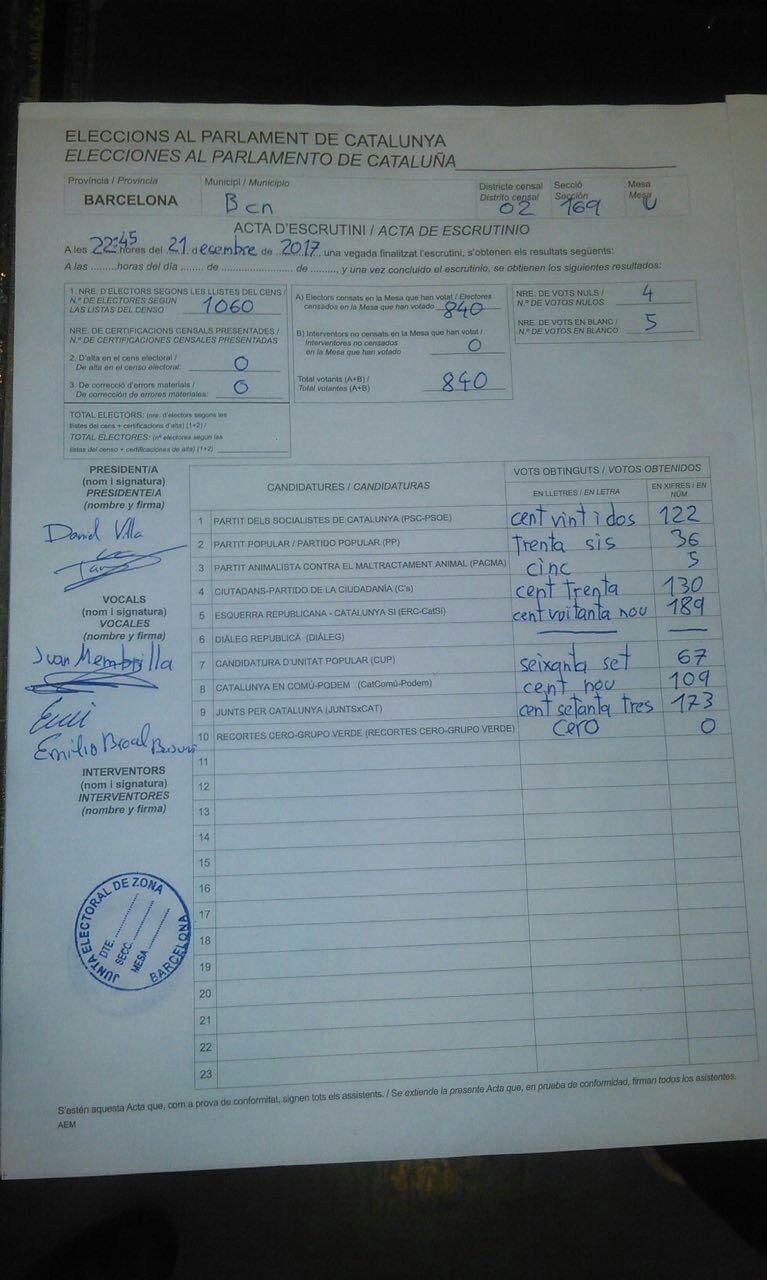 ELECCIONS AL PARLAMENT DE CATALUNYA
ELECCIONES AL PARLAMENTO DE CATALUÑA
Província / Provincia
BARCELONA
Municipi / Municipio
Bcn
Districte censal
Distrito censal
02
Secció
Sección
169
Mesa
Mesa
U
ACTA D'ESCRUTINI / ACTA DE ESCRUTINIO
A les 22:45 hores del 21 desembre de 2017, una vegada finalitzat l'escrutini, s'obtenen els resultats següents:
A las ........horas del día ....... de ............................ de ........, y una vez concluido el escrutinio, se obtienen los siguientes resultados:
1. NRE. D'ELECTORS SEGONS LES LLISTES DEL CENS /
N.º DE ELECTORES SEGÚN
LAS LISTAS DEL CENSO 1060
NRE. DE CERTIFICACIONS CENSALS PRESENTADES /
N.º DE CERTIFICACIONES CENSALES PRESENTADAS
2. D'alta en el cens electoral /
De alta en el censo electoral: 0
3. De correcció d'errors materials /
De corrección de errores materiales: 0
TOTAL ELECTORS: (nre. d'electors segons les
llistes del cens + certificacions d'alta) (1+2) /
TOTAL ELECTORES: (nº electores según las
listas del censo + certificaciones de alta) (1+2)
A) Electors censats en la Mesa que han votat / Electores
censados en la Mesa que han votado 840
B) Interventors no censats en la Mesa que han votat /
Interventores no censados
en la Mesa que han votado 0
Total votants (A+B) /
Total votantes (A+B) 840
NRE. DE VOTS NULS /
N.º DE VOTOS NULOS 4
NRE. DE VOTS EN BLANC /
N.º DE VOTOS EN BLANCO 5
PRESIDENT/A
(nom i signatura)
PRESIDENTE/A
(nombre y firma)
David Villa
VOCALS
(nom i signatura)
VOCALES
(nombre y firma)
Juan Membrilla
Emilio
INTERVENTORS
(nom i signatura)
INTERVENTORES
(nombre y firma)
JUNTA ELECTORAL DE ZONA
DTE. ................
SECC. ................
MESA ................
BARCELONA
CANDIDATURES / CANDIDATURAS
VOTS OBTINGUTS / VOTOS OBTENIDOS
EN LLETRES / EN LETRA
EN XIFRES / EN NÚM.
1 PARTIT DELS SOCIALISTES DE CATALUNYA (PSC-PSOE) cent vint i dos 122
2 PARTIT POPULAR / PARTIDO POPULAR (PP) Trenta sis 36
3 PARTIT ANIMALISTA CONTRA EL MALTRACTAMENT ANIMAL (PACMA) cinc 5
4 CIUTADANS-PARTIDO DE LA CIUDADANÍA (C's) cent trenta 130
5 ESQUERRA REPUBLICANA - CATALUNYA SI (ERC-CatSí) cent vuitanta nou 189
6 DIÀLEG REPUBLICÀ (DIÀLEG)
7 CANDIDATURA D'UNITAT POPULAR (CUP) seixanta set 67
8 CATALUNYA EN COMÚ-PODEM (CatComú-Podem) cent nou 109
9 JUNTS PER CATALUNYA (JUNTSxCAT) cent setanta tres 173
10 RECORTES CERO-GRUPO VERDE (RECORTES CERO-GRUPO VERDE) cero 0
11
12
13
14
15
16
17
18
19
20
21
22
23
S'estén aquesta Acta que, com a prova de conformitat, signen tots els assistents. / Se extiende la presente Acta que, en prueba de conformidad, firman todos los asistentes.
AEM